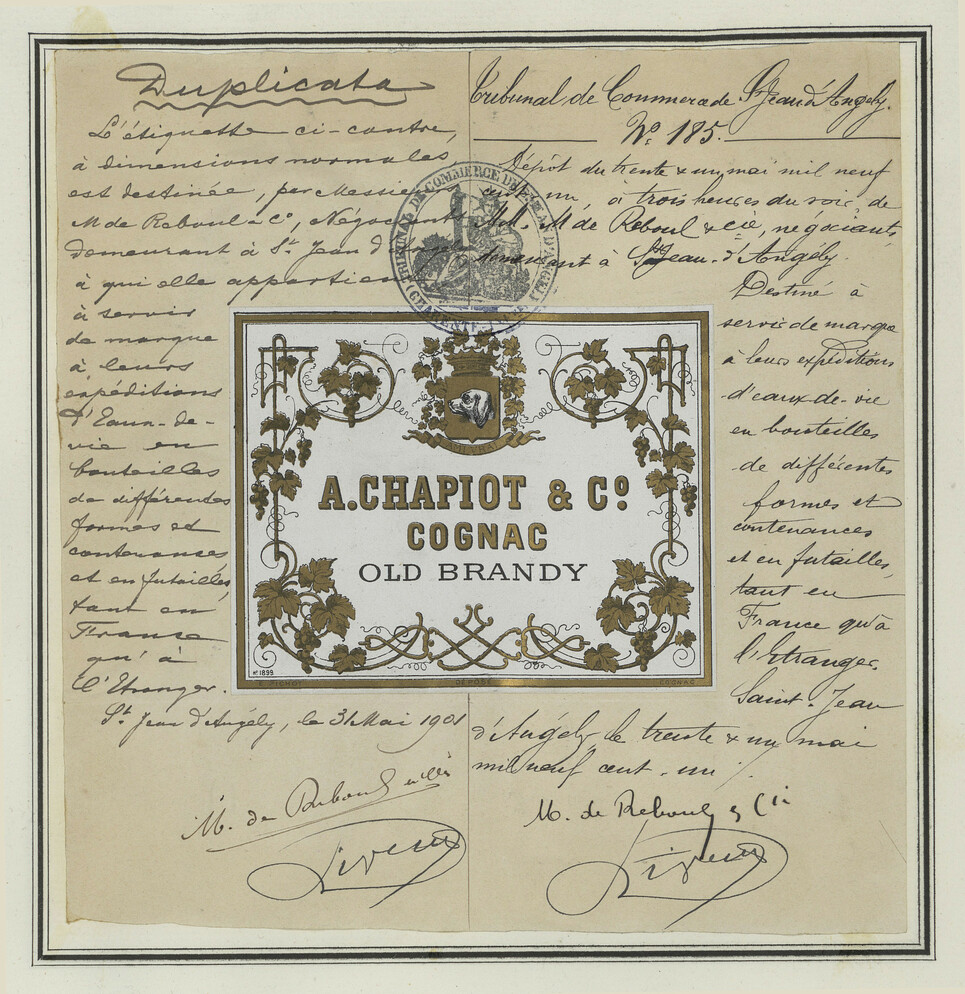 Duplicata
L'étiquette ci-contre,
à dimensions normales,
est destinée, par Messieurs
M de Reboul & Cº, Négociants
demeurant à St Jean d'Angély
à qui elle appartient
à servir
de marque
à leurs
expéditions
d'Eaux-de-
vie en
bouteilles
de différentes
formes et
contenances
et en futailles,
tant en
France
qu'à
l'Etranger.
St Jean d'Angély, le 31 Mai 1901
M. de Reboul & Cie
Tribunal de Commerce de St Jean d'Angély.
Nº 185.
Dépôt du trente & un mai mil neuf
cent un, à trois heures du soir, de
MM. M de Reboul & Cie, négociants,
demeurant à St Jean-d'Angély.
Destiné à
servir de marque
à leurs expéditions
d'eaux-de-vie
en bouteilles
de différentes
formes et
contenances
et en futailles,
tant en
France qu'à
l'Etranger.
Saint-Jean
d'Angély le trente & un mai
mil neuf cent-un /.
M. de Reboul & Cie
TRIBUNAL DE COMMERCE DE ST JEAN D'ANGELY
(CHARENTE-INFRE)
A. CHAPIOT & Cº
COGNAC
OLD BRANDY
Nº 1899
DÉPOSÉ
COGNAC